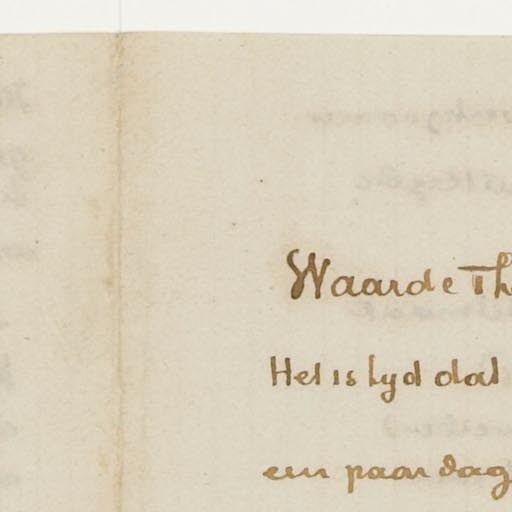 Waarde Th
Het is tyd dat
een paar dag